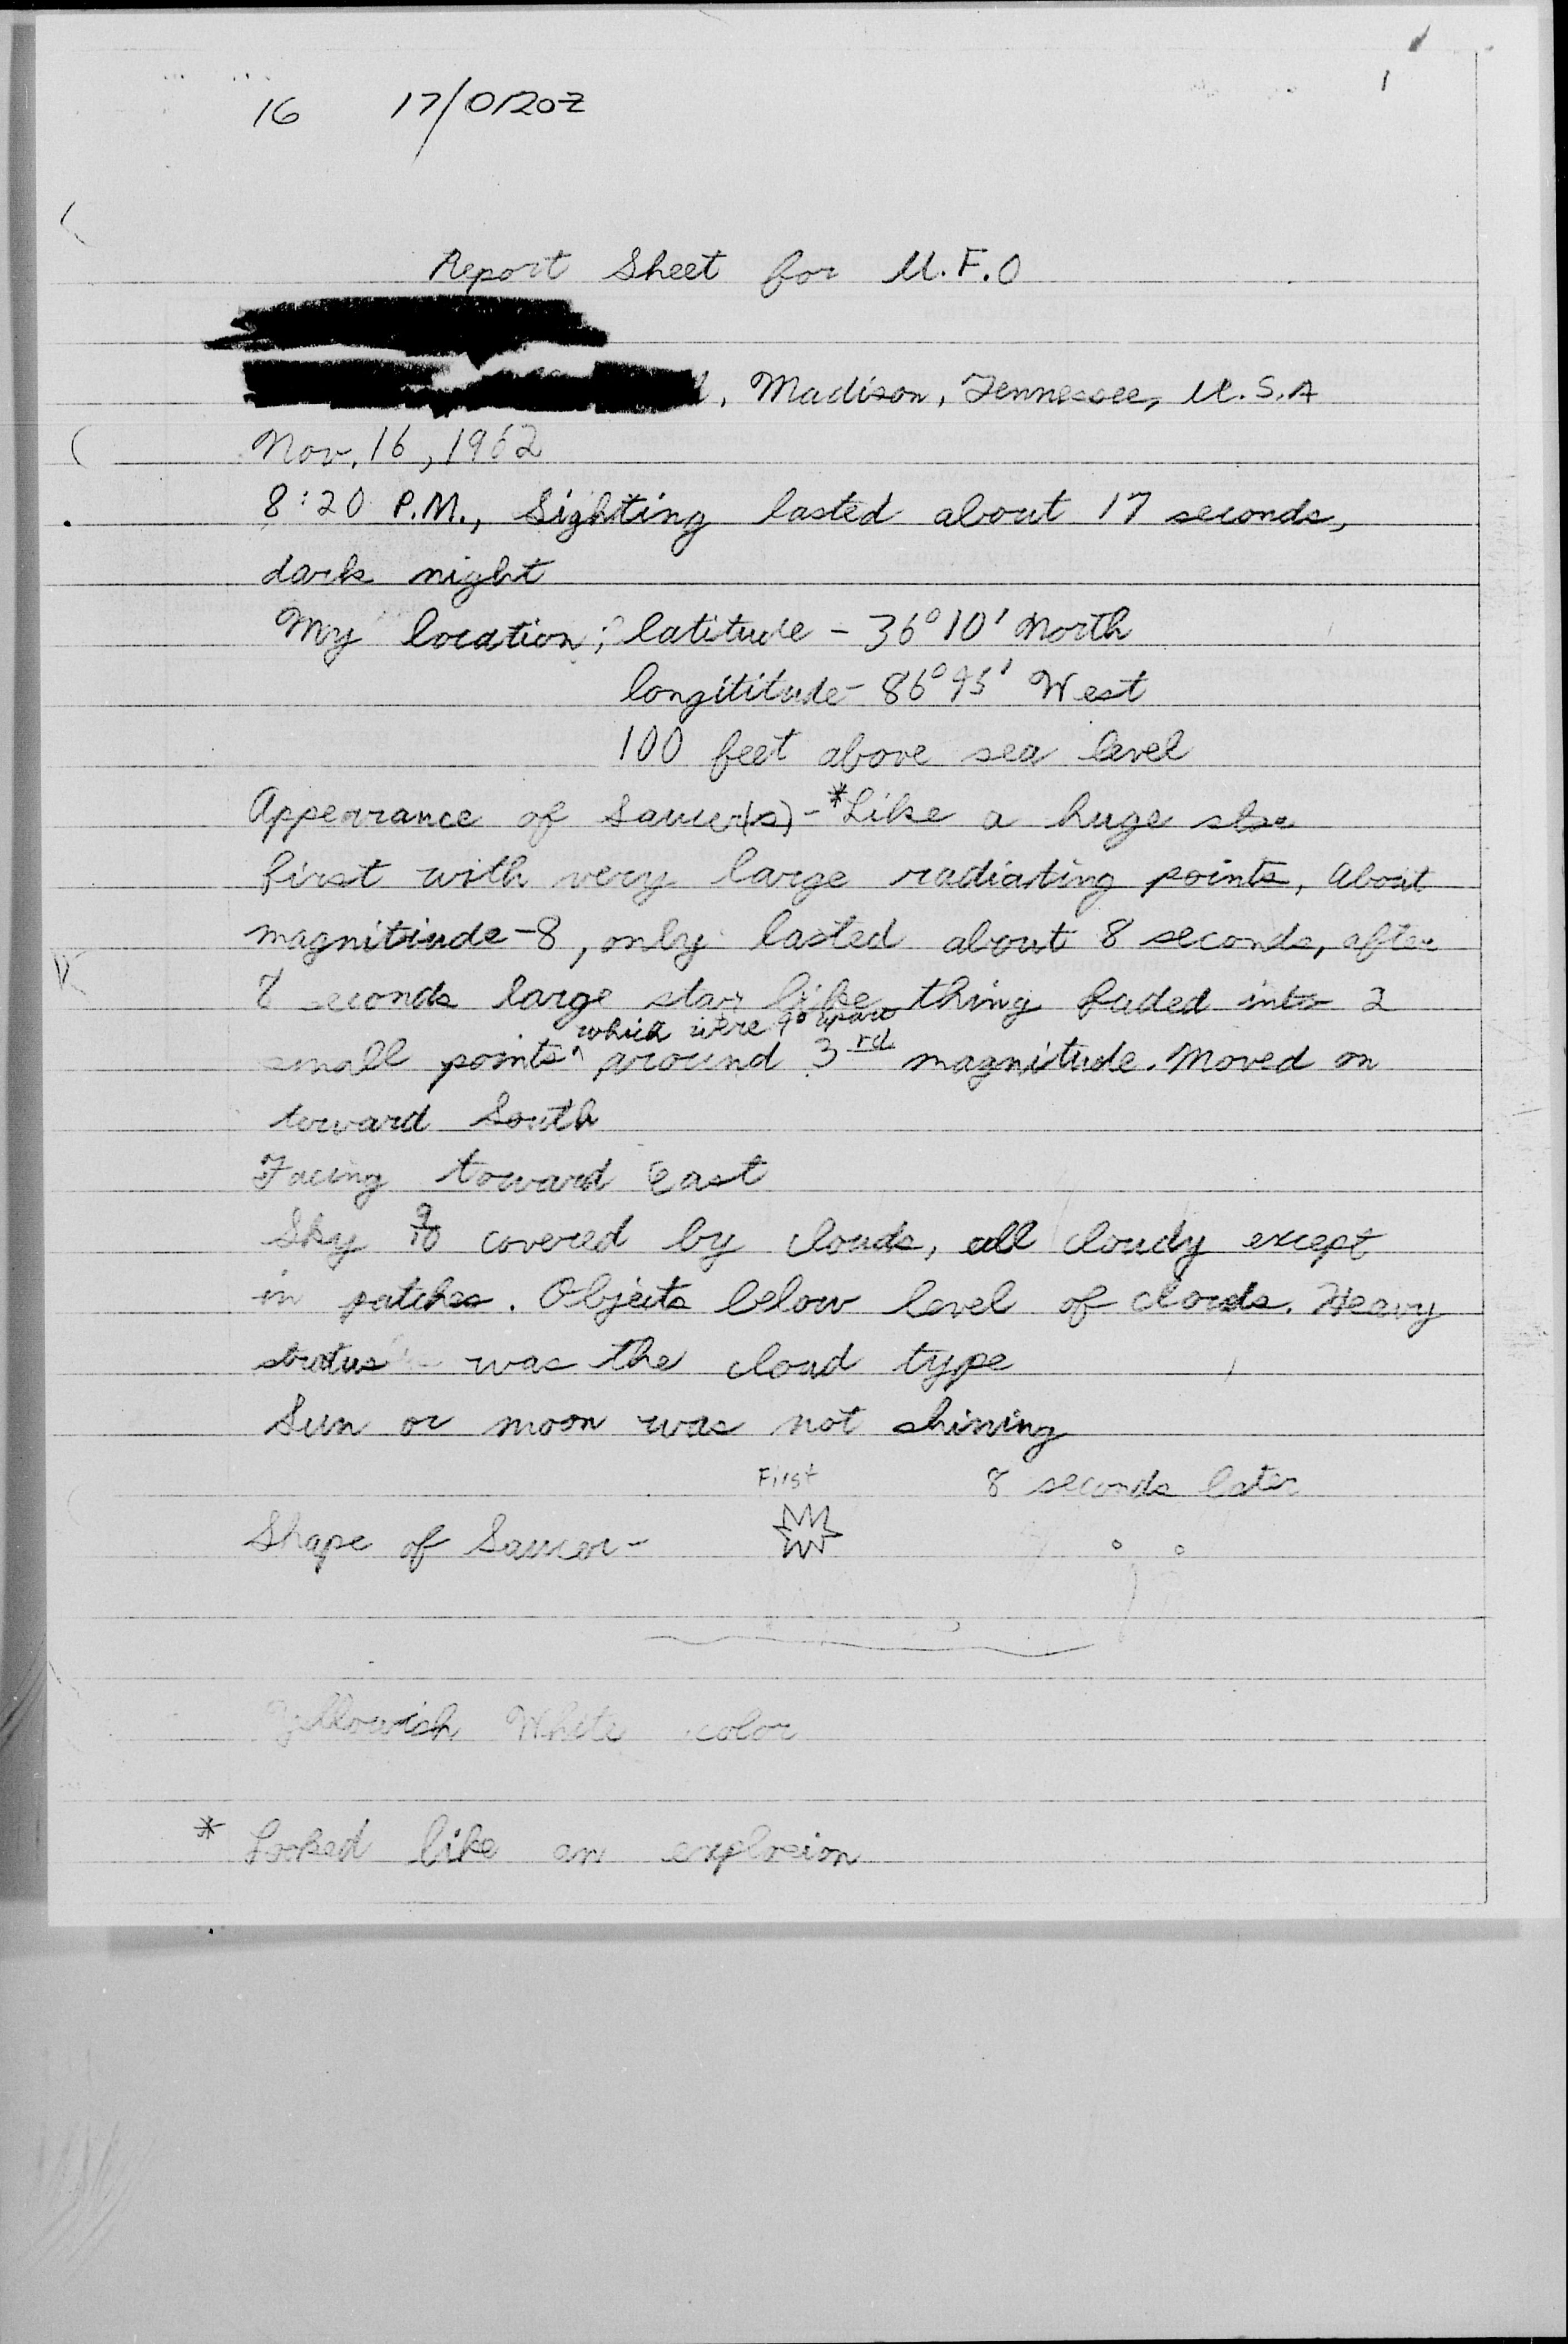 1
16 17/0120Z
Report Sheet for U.F.O
, Madison, Tennessee, U.S.A
Nov. 16, 1962
8:20 P.M., Sighting lasted about 17 seconds,
dark night
My location; latitude - 36° 10' North
longititude - 86° 45' West
100 feet above sea level
Appearance of Saucer(s) - *Like a huge star
first with very large radiating points, About
magnitiude -8, only lasted about 8 seconds, after
8 seconds large star like thing faded into 2
which were
small points ^ around 3rd magnitude. Moved on
toward South
Facing toward East
Sky 9/10 covered by clouds, all cloudy except
in patches. Objects below level of clouds. Heavy
stratus was the cloud type
Sun or moon was not shining
First 8 seconds later
Shape of Saucer -
Yellowish White color
* Looked like an explosion